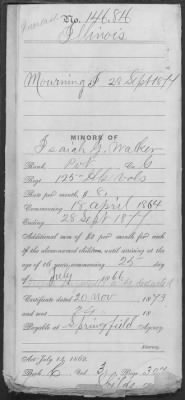 No. 146.814
Illinois
Mourning J 28 Sept 1877
MINORS OF
Isaiah G. Walker
Rank, Pvt Co. C
Regt. 125 Ills Vols
Rate per month, $ 8.
Commencing 18 April 1864
Ending 28 Sept 1877
Additional sum of $2 per month for each
of the aforenamed children, until arriving at the
age of 16 years, commencing 25
day of July 1866
Certificate dated 20 Nov 1873
and sent
Payable at Springfield Agency
Attorney,
Act July 14, 1862.
Book C Vol. 3 Page 307